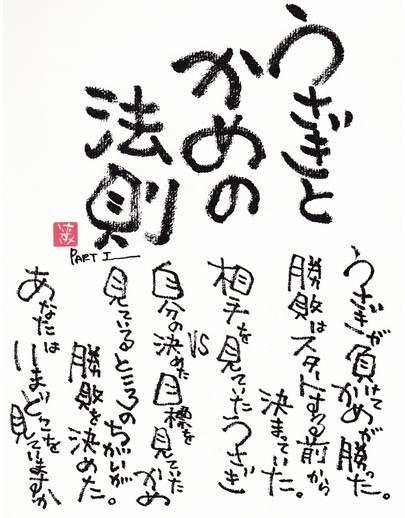 うさぎと
かめの
法則
PART I
うさぎが負けて
かめが勝った。
勝敗はスタートする前から
決まっていた。
相手を見ていたうさぎ
VS
自分の決めた目標を見ていたかめ
見ているところのちがいが
勝敗を決めた。
あなたはいまどこを
見ていますか